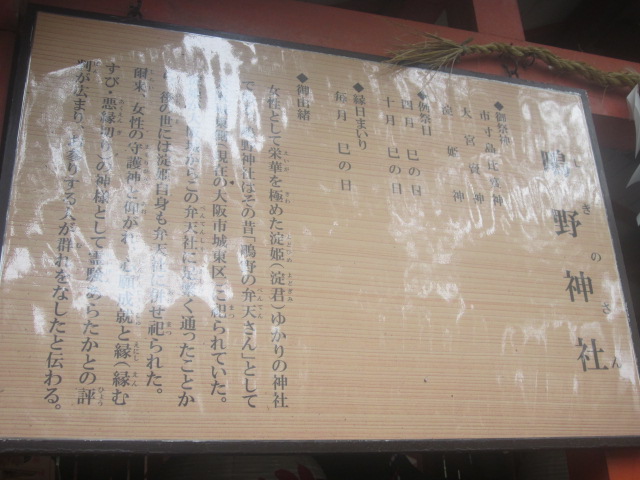 鴫野神社
◆御祭神
市寸島比売神
大宮売神
淀姫神
◆例祭日
四月 巳の日
十月 巳の日
◆縁日まいり
毎月 巳の日
◆御由緒
女性として栄華を極めた淀姫(淀君)ゆかりの神社
野神社はその昔「鴫野の弁天さん」として
現在の大阪市城東区)に祀られていた。
からこの弁天社に足繁く通ったことか
後の世には淀姫自身も弁天社に併せ祀られた。
爾来、女性の守護神と仰がれ、心願成就と縁(縁む
すび・悪縁切り)の神様として霊験あらたかとの評
判が広まり、お参りする人が群れをなしたと伝わる。